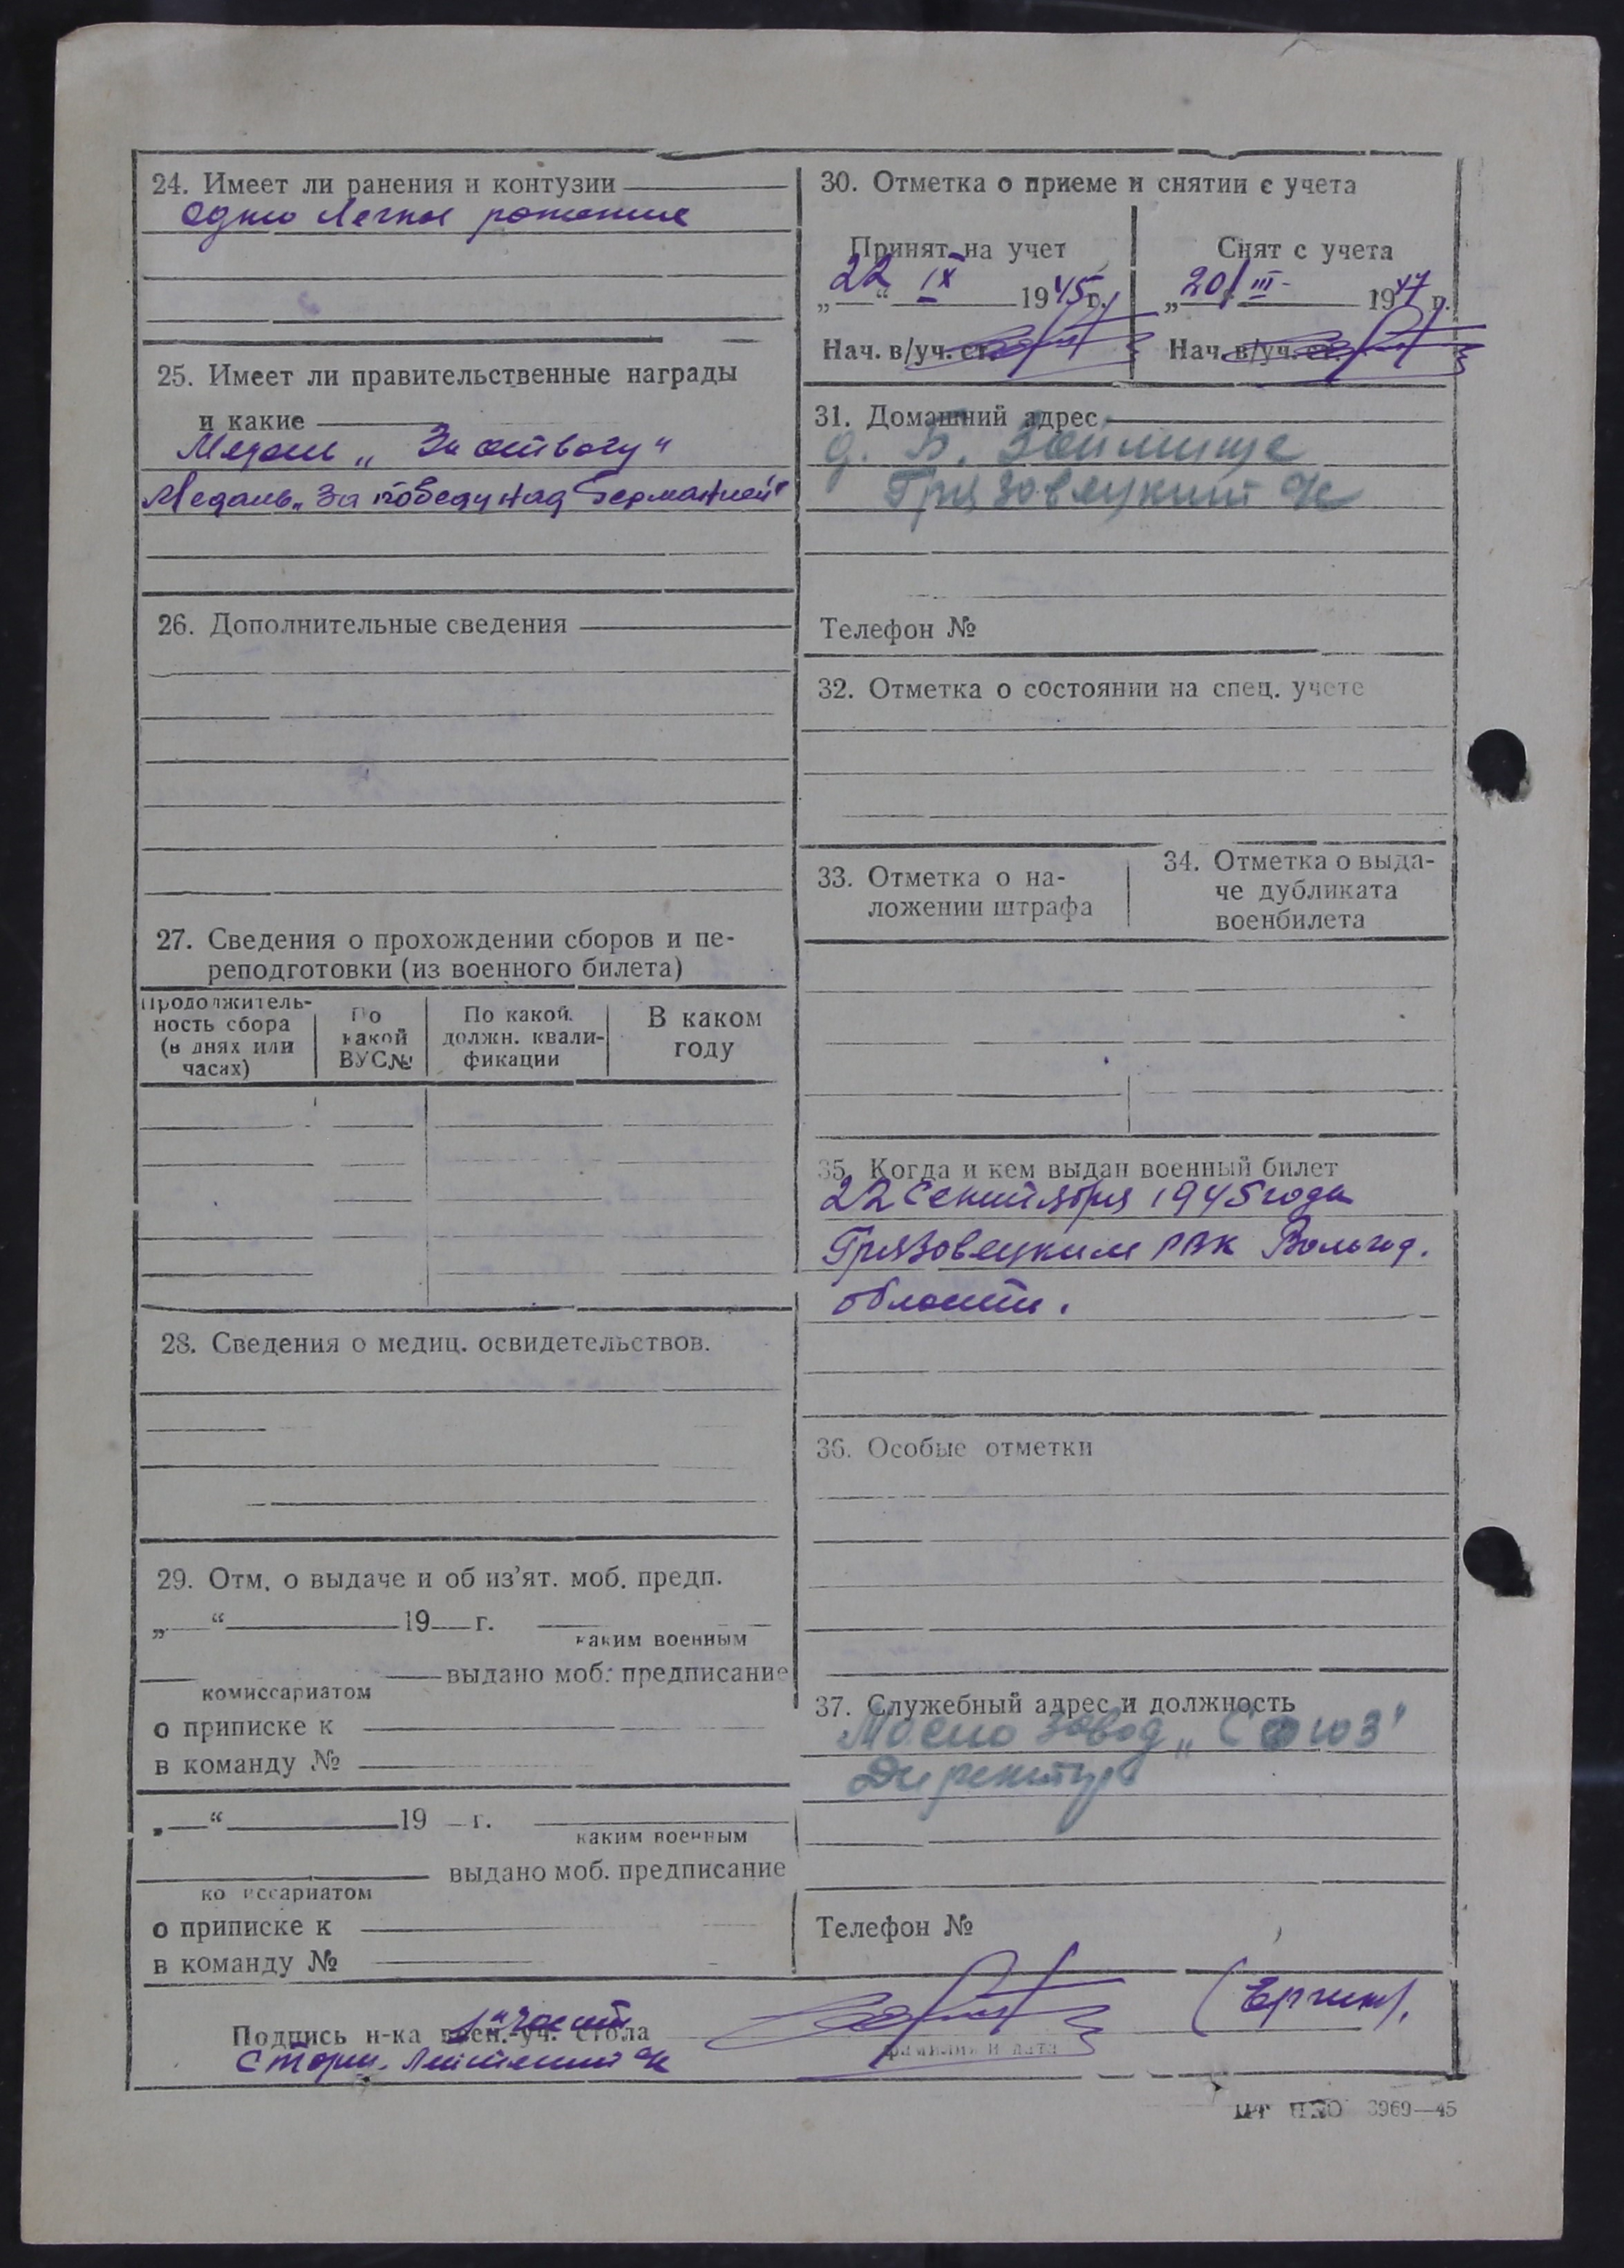 24. Имеет ли ранения и контузии
одно легкое ранение
25. Имеет ли правительственные награды
и какие
Медаль „За отвагу“
Медаль „За победу над Германией“
26. Дополнительные сведения
27. Сведения о прохождении сборов и пе-
реподготовки (из военного билета)
Продолжитель-
ность сбора
(в днях или
часах)
По
какой
ВУС№
По какой
должн. квали-
фикации
В каком
году
28. Сведения о медиц. освидетельствов.
29. Отм. о выдаче и об из’ят. моб. предп.
„ “ 19 г.
каким военным
выдано моб. предписание
комиссариатом
о приписке к
в команду №
„ “ 19 г.
каким военным
выдано моб. предписание
ко иссариатом
о приписке к
в команду №
30. Отметка о приеме и снятии с учета
Принят на учет
„22“ IX 1945г.
Нач. в/уч. ст.
Снят с учета
„20/ III 1947 г.
Нач. в/уч. ст.
31. Домашний адрес
д. Б. Займище
Грязовецкий
Телефон №
32. Отметка о состоянии на спец. учете
33. Отметка о на-
ложении штрафа
34. Отметка о выда-
че дубликата
военбилета
35. Когда и кем выдан военный билет
22 Сентября 1945 года
Грязовецким РВК Вологод.
области.
36. Особые отметки
37. Служебный адрес и должность
Маслозавод „Союз“
Директор
Телефон №
Подпись н-ка воен.-уч. стола
1й части
Старш. Лейтенант
фамилия и дата
3969—45